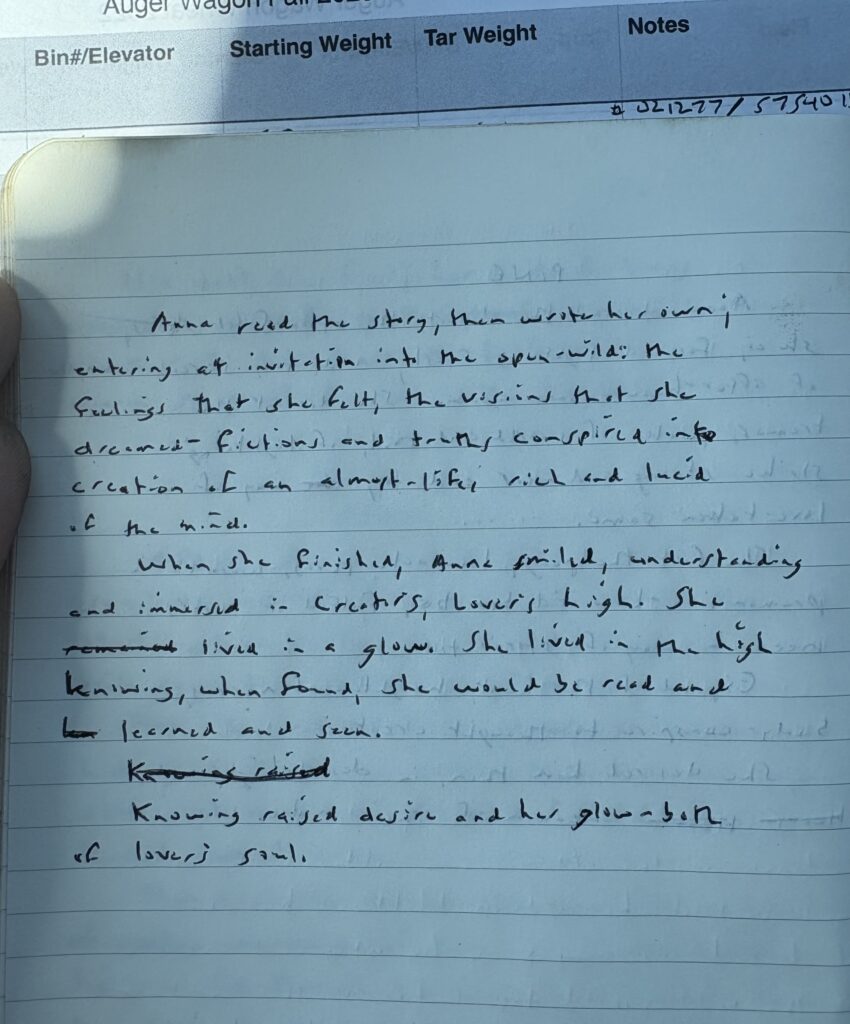 Auger Wagon Fall
Bin#/Elevator Starting Weight Tar Weight Notes
# 021277 / 575401
Anna read the story, then wrote her own;
entering at invitation into the open-wild: the
feelings that she felt, the visions that she
dreamed- fictions and truths conspired into
creation of an almost-life, rich and lucid
of the mind.
When she finished, Anna smiled, understanding
and immersed in creator's, lover's high. She
remained lived in a glow. She lived in the high
knowing, when found, she would be read and
learned and seen.
Knowing raised
Knowing raised desire and her glow-both
of lover's soul.